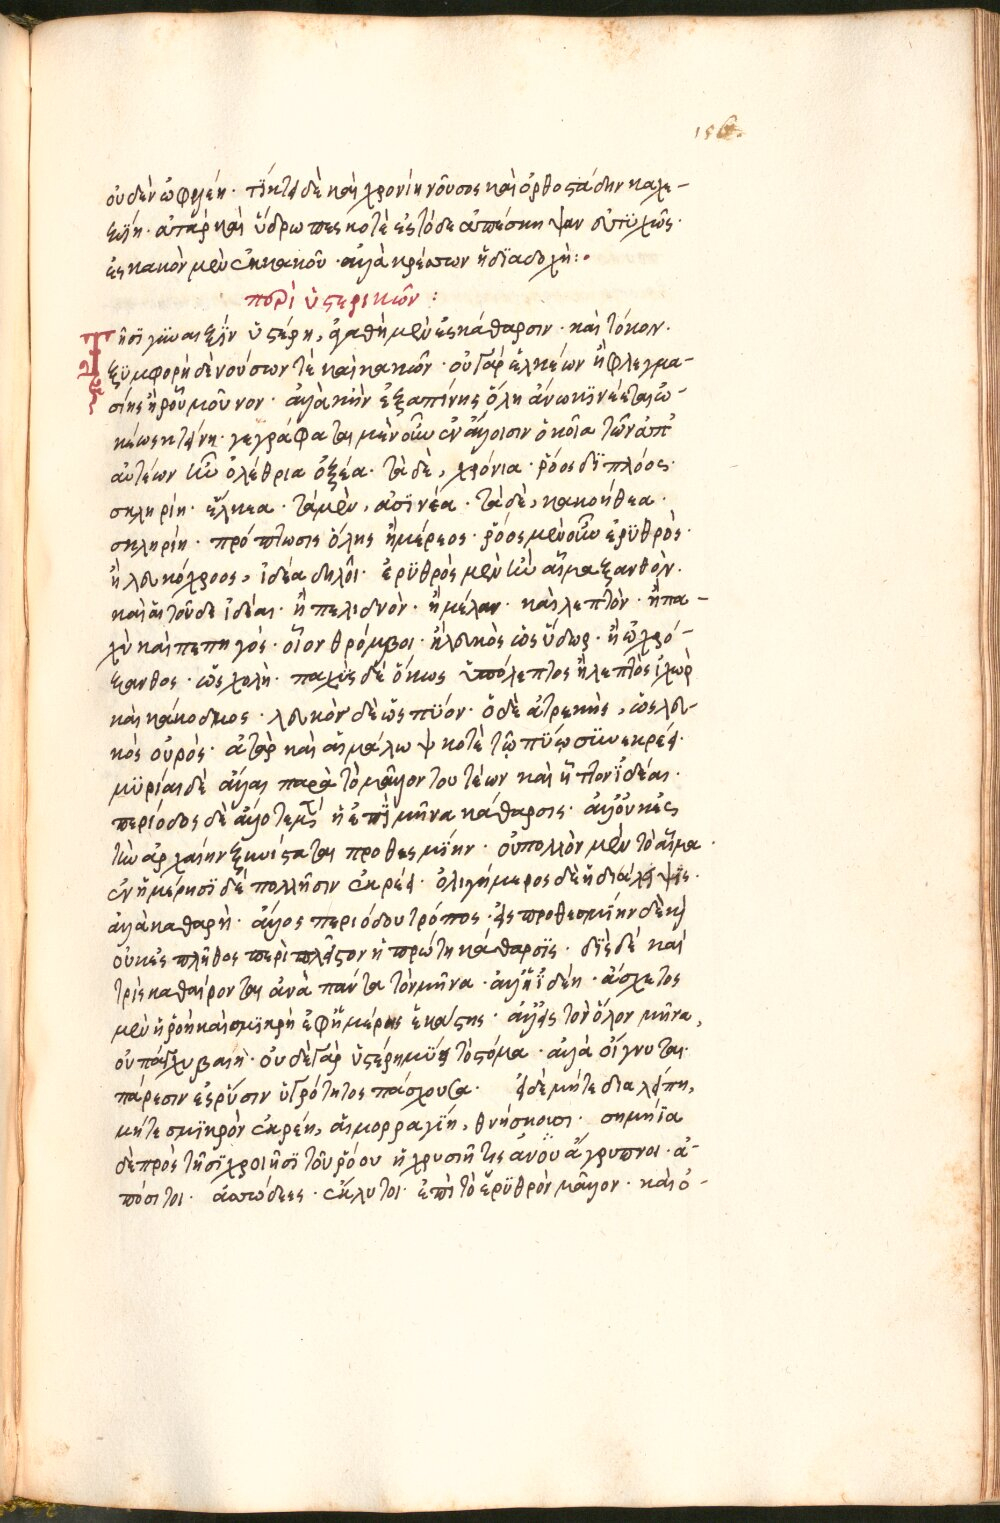 156.
οὐδὲν ὠφελέη· τίκτει δὲ καὶ χρονίη νοῦσος καὶ ὀρθοστάδην καχε-
ξίη· ἀτὰρ καὶ ὕδρωπες κοτὲ ἐς τόδε ἀπέσκηψαν εὐτυχῶς·
ἐς κακὸν μὲν ἐκ κακοῦ· ἀλλὰ κρέσσων ἡ διαδοχή:·
περὶ ὑστερικῶν:
Τῇσι γυναιξὶν ὑστέρη, ἀγαθὴ μὲν ἐς κάθαρσιν· καὶ τόκον·
ξυμφορὴ δὲ νούσων τὲ καὶ κακῶν· οὐ γὰρ ἑλκέων ἢ φλεγμα-
σίης ἢ ῥόου μοῦνον· ἀλλὰ κὴν ἐξαπίνης ὅλη ἄνω κινέεται ὠ-
κέως κτείνη· γεγράφαται μὲν οὖν ἐν ἄλλοισιν ὁκοῖα τῶν ἀπ
αὐτέων ἦν ὀλέθρια ὀξέα· τὰ δὲ, χρόνια· ῥόος διπλόος·
σκληρίη· ἕλκεα· τὰ μὲν, ἀσινέα· τὰ δὲ, κακοήθεα·
σκληρίη· πρόπτωσις ὅλης ἢ μέρεος· ῥόος μὲν οὖν ἐρυθρὸς·
ἢ λευκόχροος, ἰδέα δηλοῖ· ἐρυθρὸς μὲν ἦν αἷμα ξανθὸν·
καὶ αἱ τοῦδε ἰδέαι· ἢ πελιδνὸν· ἢ μέλαν· καὶ λεπτὸν· ἢ πα-
χὺ καὶ πεπηγὸς· οἷον θρόμβοι· ἢ λευκὸς ὡς ὕδωρ· ἢ ὠχρό-
ξανθος· ὡς χολὴ· παχὺς δὲ ὅκως ὑπόλεπτος ἢ λεπτὸς ἰχὼρ
καὶ κάκοδμος· λευκὸν δὲ ὡς πύον· ὁ δὲ ἀτρεκὴς, ὡς λευ-
κὸς οὐρὸς· ἀτὰρ καὶ αἱμάλωψ κοτὲ τῷ πύῳ συνεκρέει·
μυρίαι δὲ ἄλλαι παρὰ τὸ μᾶλλον τουτέων καὶ ἧττον ἰδέαι·
περίοδος δὲ ἄλλοτε μὲν ἡ ἐπὶ μῆνα κάθαρσις· ἀλλ οὐκ ἐς
τὴν ἀρχαίην ξυνίσταται προθεσμίην· οὐ πολλὸν μὲν τὸ αἷμα·
ἐν ἡμέρησι δὲ πολλῇσιν ἐκρέει· ὀλιγήμερος δὲ ἡ διάλειψις·
ἀλλὰ καθαρὴ· ἄλλος περιόδου τρόπος· εἰς προθεσμίην δὲ κὴ
οὐκ ἐς πλῆθος περὶ πλεῖστον ἡ πρώτη κάθαρσις· δὶς δὲ καὶ
τρὶς καθαίρονται ἀνὰ πάντα τὸν μῆνα· ἄλλη ἰδέη· ἄσχετος
μὲν ἡ ῥοὴ καὶ σμικρὴ ἐφ ἡμέρης ἑκάστης· ἀλλ εἰς τὸν ὅλον μῆνα,
οὐ πάγχυ βαιὴ· οὐδὲ γὰρ ὑστέρη μύει τὸ στόμα· ἀλλὰ οἴγνυται
πάρεσιν ἐς ῥύσιν ὑγρότητος πάσχουσα· εἰ δὲ μήτε διαλείπη,
μήτε σμικρὸν ἐκρέη, αἱμορραγίη, θνήσκουσι· σημήϊα
δὲ πρὸς τῇσι χροιῇσι τοῦ ῥόου ἢ χρυσίη τις ἄνου ἄγρυπνοι· ἀ-
πόσιτοι· ἀσώδεες· ἔκλυτοι· ἐπὶ τὸ ἐρυθρὸν μᾶλλον· καὶ ὀ-